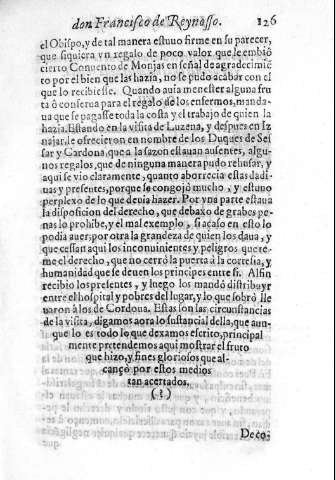 don Francisco de Reynosso. 126
el Obispo, y de tal manera estuuo firme en su parecer,
que siquiera vn regalo de poco valor que le embiò
cierto Conuento de Monjas en señal de agradecimiẽ
to por el bien que las hazia, no se pudo acabar con el
que lo recibiesse. Quando auia menester alguna fru
ta ò conserua para el regalo de los enfermos, manda-
ua que se pagasse toda la costa y el trabajo de quien la
hazia. Estando en la visita de Luzena, y despues en Iz
najar, le ofrecieron en nombre de los Duques de Sef
sar y Cardona, que a la sazon estauan ausentes, algu-
nos regalos, que de ninguna manera pudo rehusar, y
aqui se vio claramente, quanto aborrecia estas dadi-
uas y presentes, porque se congojò mucho, y estuuo
perplexo de lo que deuia hazer. Por vna parte estaua
la disposicion del derecho, que debaxo de grabes pe-
nas lo prohibe, y el mal exemplo, si acaso en esto lo
podia auer; por otra la grandeza de quien los daua, y
que cessan aqui los inconuinientes y peligros que te-
me el derecho, que no cerrò la puerta à la cortesia, y
humanidad que se deuen los principes entre si. Alfin
recibio los presentes, y luego los mandò distribuyr
entre el hospital y pobres del lugar, y lo que sobrò lle
uaron à los de Cordoua. Estas son las circunstancias
de la visita, digamos aora lo sustancial della, que aun-
que lo es todo lo que dexamos escrito, principal
mente pretendemos aqui mostrar el fruto
que hizo, y fines gloriosos que al-
cançò por estos medios
tan acertados.
(?)
De co-